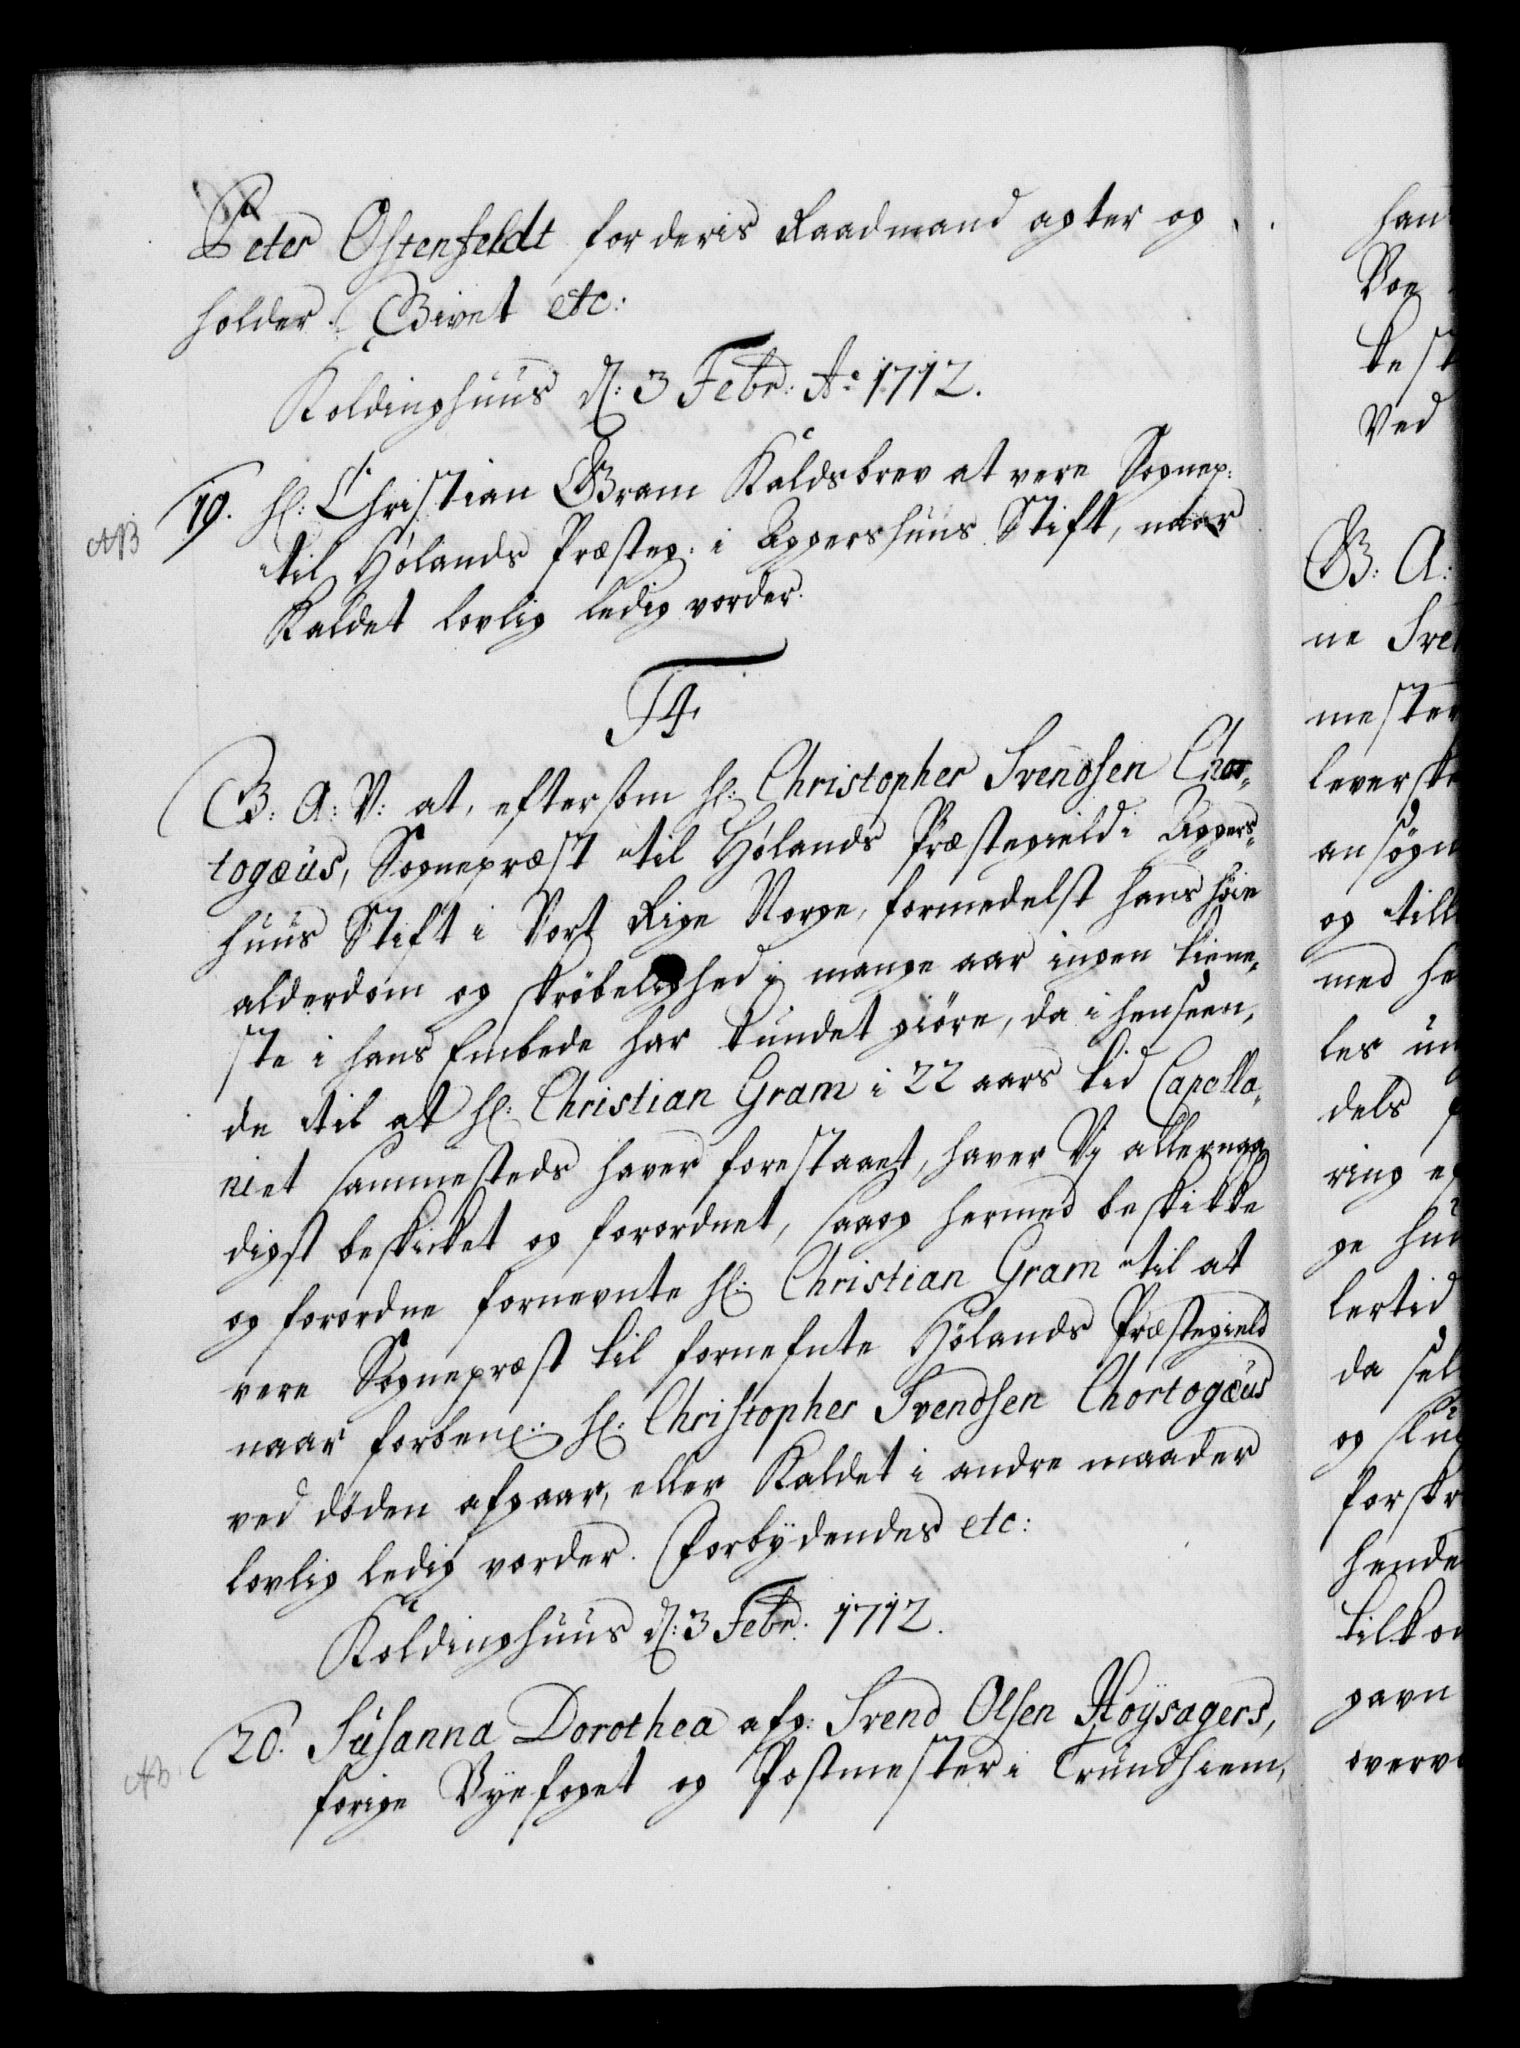 Peter Ostenfeldt for deris Raadmand agter og
holder. Givet etc:
Koldinghuus d: 3 Febr: Aº 1712.
19. Hr: Christian Gram Kaldsbrev at vere Sognep:
AB
til Hølands Præsteg: i Aggershuus Stift, naar
Kaldet lovlig ledig vorder.
F4.
G: A: V: at, eftersom Hr: Christopher Svendsen Chor-
togæus, Sognepræst til Hølands Præstegield i Aggers-
huus Stift i Vort Rige Norge, formedelst hans høie
alderdom og skrøbelighed i mange aar ingen tiene-
ste i hans Embede har kundet giöre, da i henseen-
de til at Hr: Christian Gram i 22 aars tid Capella-
niet sammesteds haver forestaaet, haver Vj allernaa-
digst beskicket og forordnet, saaog hermed beskikke
og forordne fornevnte Hr: Christian Gram til at
vere Sognepræst til fornefnte Hölands Præstegield
naar forben: Hr: Christopher Svendsen Chortogæus
ved döden afgaar, eller Kaldet i andre maader
lovlig ledig vorder. Forbydendes etc:
Koldinghuus d: 3 Febr. 1712.
20. Susanna Dorothea afg: Svend Olsen Høysagers,
forige Byefoget og Postmester i Trundhiem,
han
Voe
besk
Ved
G: A:
ne Sve
mester
leverske
ansögn
og till
med he
les un
dels
ring ef
ge hu
lertid
da sel
og slu
forskr
hende
tilkom
gavn
overve